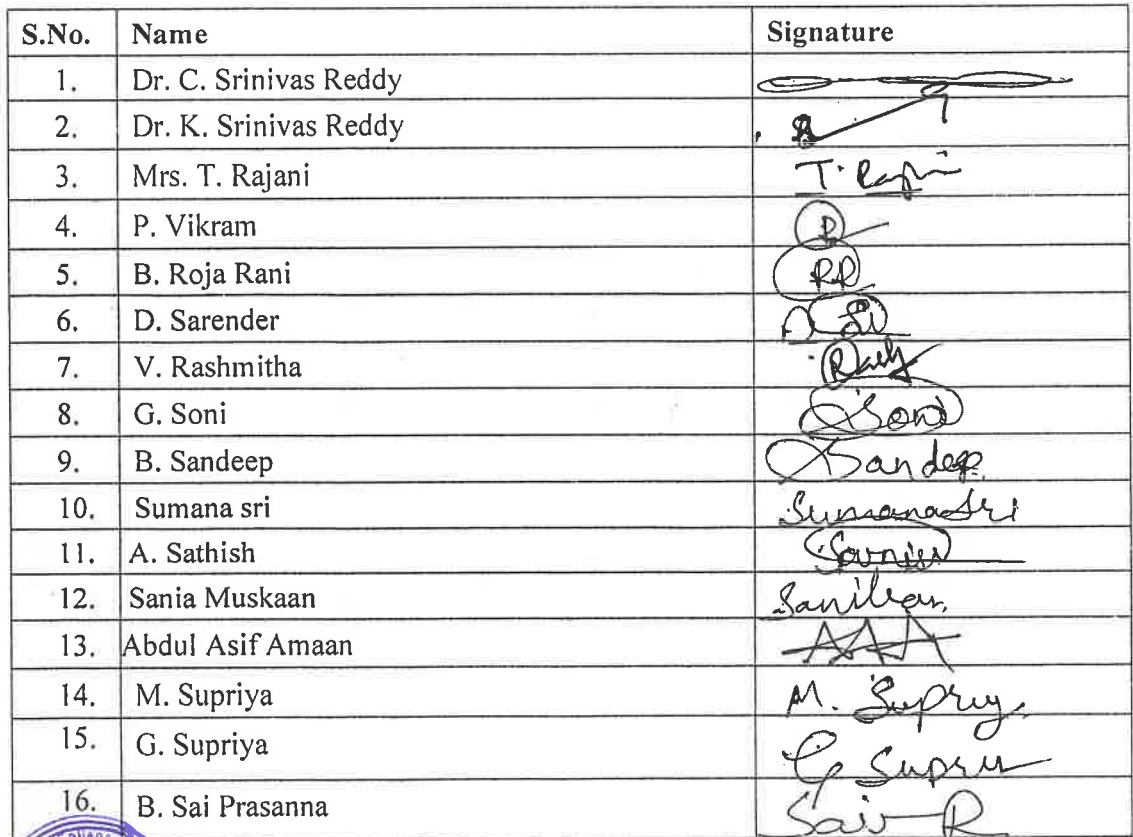 S.No. Name Signature
1. Dr. C. Srinivas Reddy
2. Dr. K. Srinivas Reddy
3. Mrs. T. Rajani T. Rajni
4. P. Vikram P
5. B. Roja Rani RR
6. D. Sarender
7. V. Rashmitha Rash
8. G. Soni Soni
9. B. Sandeep Sandeep
10. Sumana sri Sumanasri
11. A. Sathish
12. Sania Muskaan
13. Abdul Asif Amaan AAA
14. M. Supriya M. Supriy
15. G. Supriya G Supri
16. B. Sai Prasanna Sai P